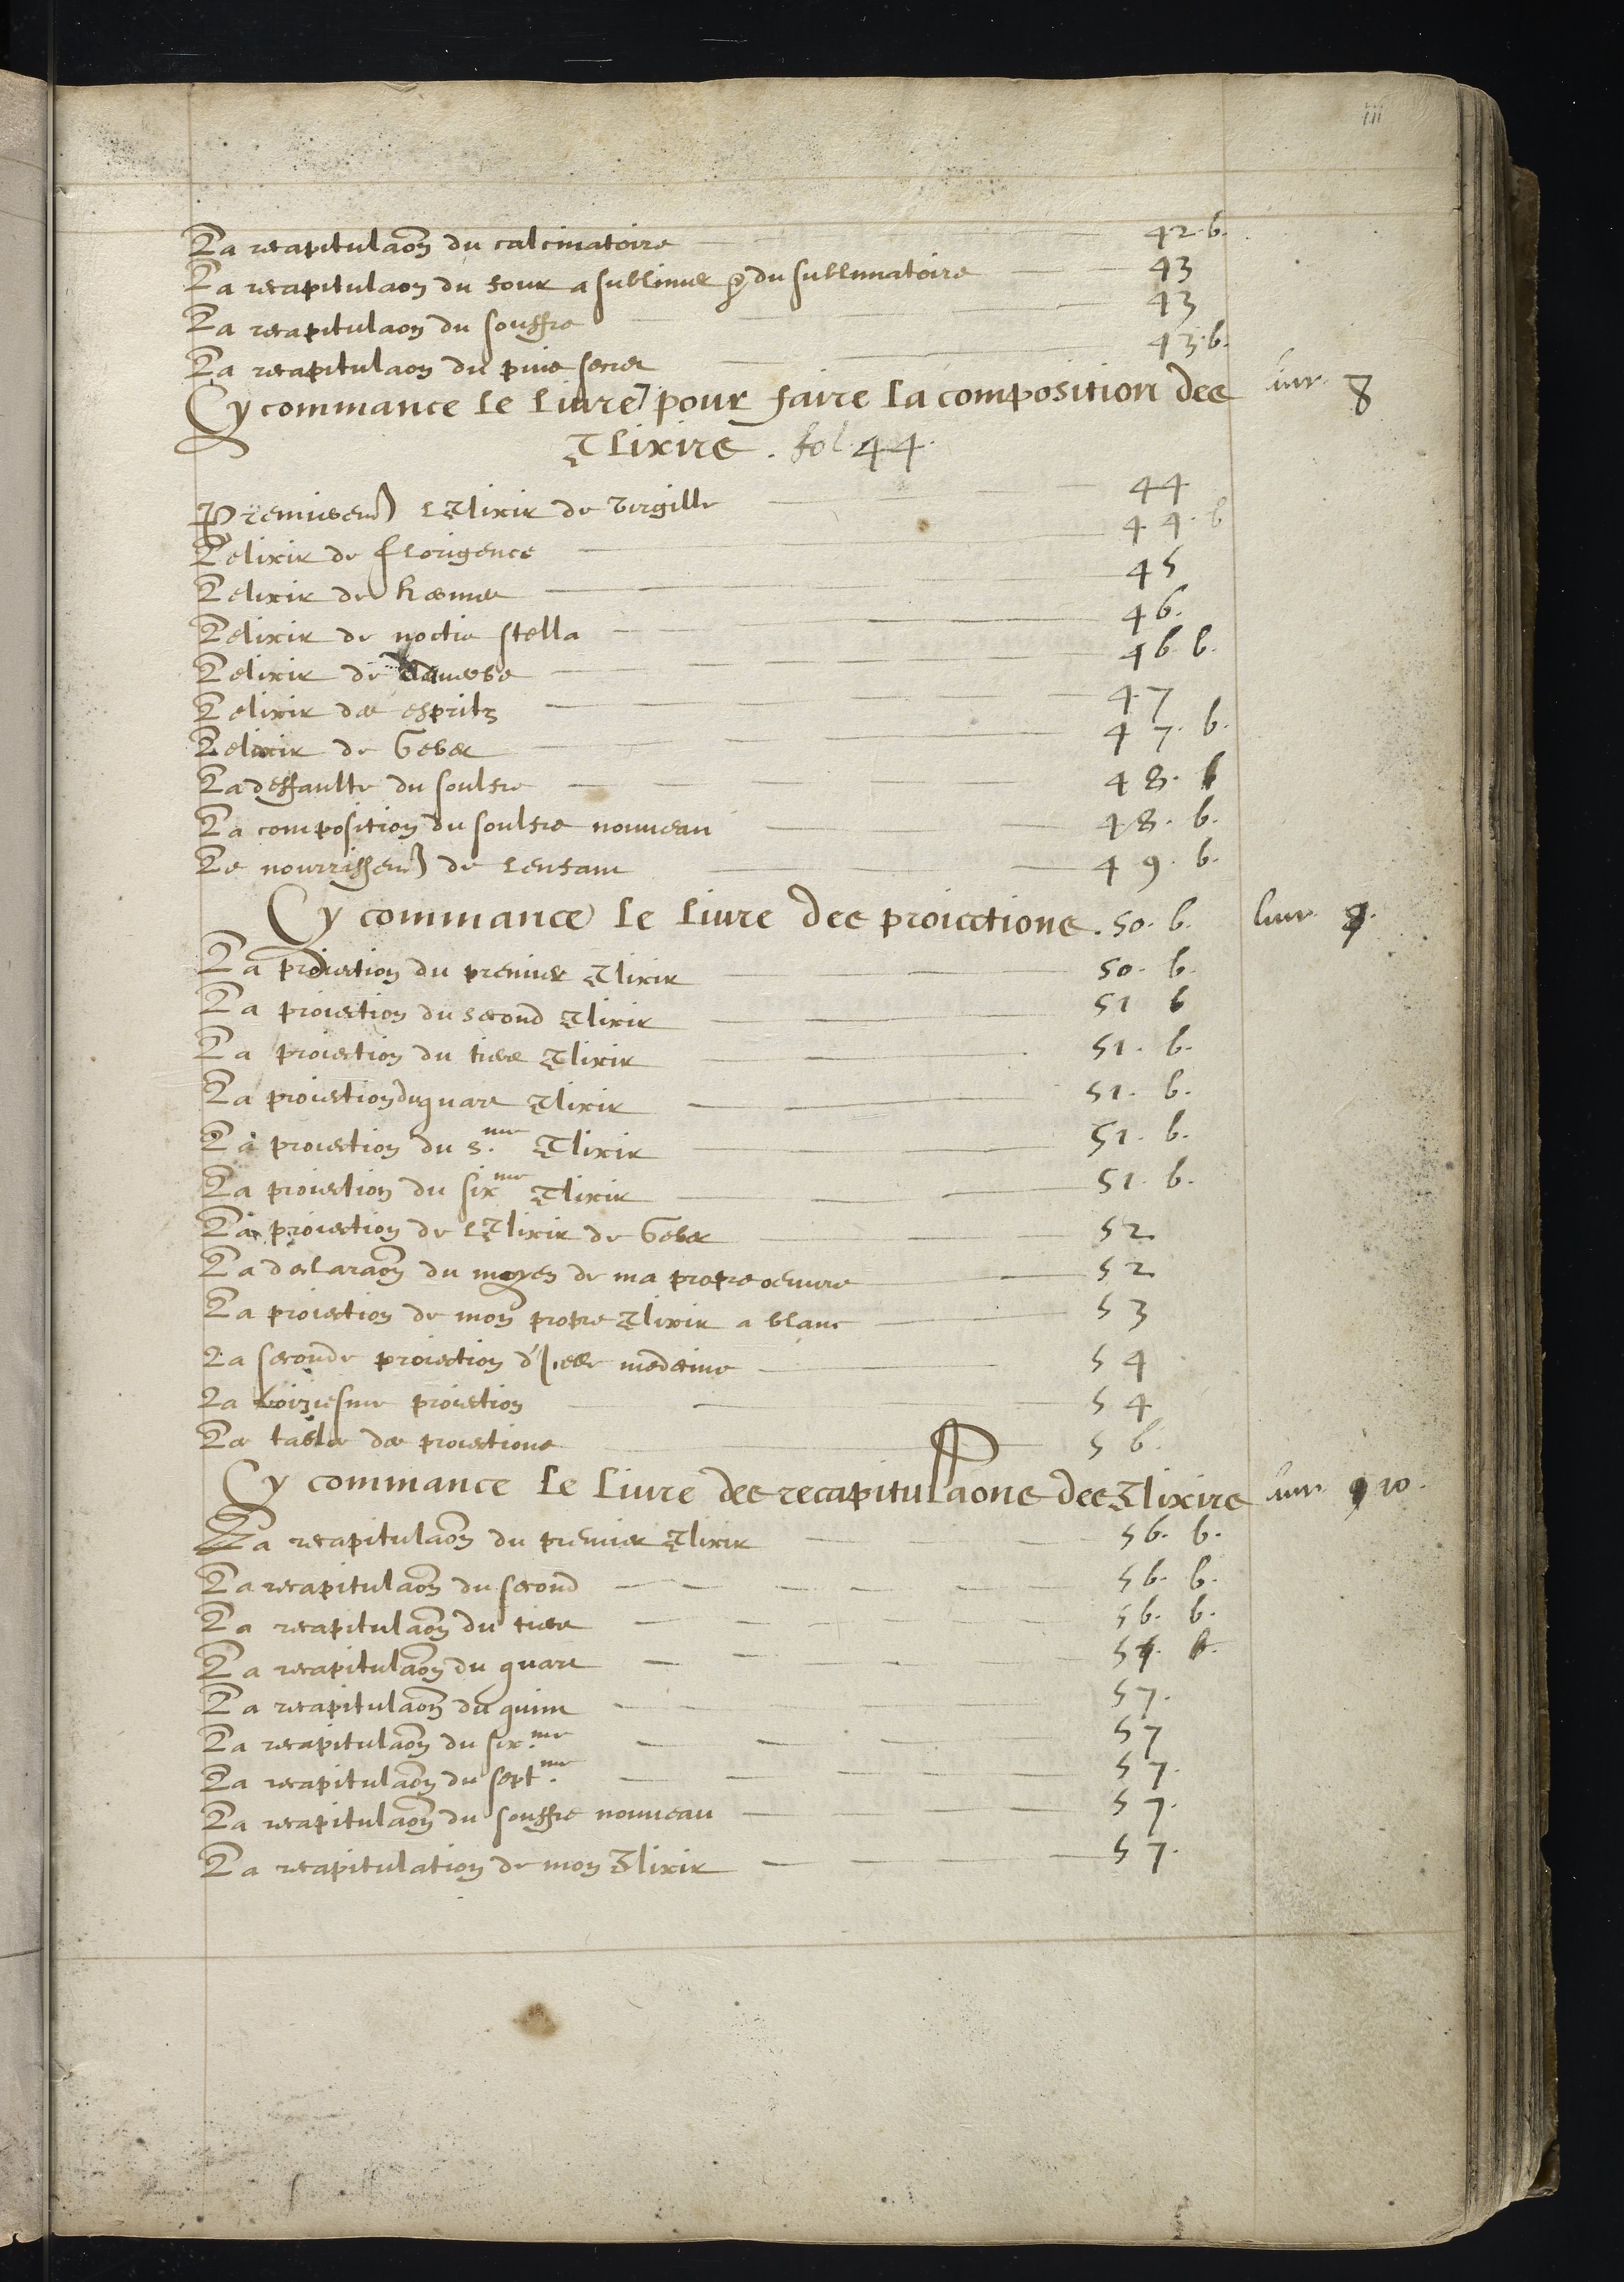 iii
La recapitulaõn du calcinatoire 42.b.
La recapitulaon du four a sublimer & du sublimatoire 43
La recapitulaon du souffre 43
La recapitulaon du secret 43.b.
Cy commance le liure pour faire la composition des liur. 8
Elixirs. fol 44.
Premierem̃ l Elixir de Virgille 44
Lelixir de florigence 44.b
Lelixir de 45
Lelixir de noctis stella 46.
Lelixir de 46 b.
Lelixir des espritz 47
Lelixir de Geber 47.b.
La deffaulte du soulfre 48.
La composition du soulfre nouueau 48.b.
Le nourrissem̃ de lenfant 49.b.
Cy commance le liure des proiections. 50.b. liur. 9.
La proiection du premier Elixir 50.b.
La proiection du second Elixir 51 b
La proiection du tiers Elixir 51.b.
La proiection du quart Elixir 51.b.
La proiection du 5.me Elixir 51.b.
La proiection du sixme Elixir 51.b.
La proiection de l Elixir de Geber 52
La declaraõn du moyen de ma propre oeuure 52
La proiection de mon propre Elixir a blanc 53
La seconde proiection d'icelle medecine 54
La troiziesme proiection 54
Les tables des proiections 56.
Cy commance le liure des recapitulaons des Elixirs liur. 10.
La recapitulaõn du premier Elixir 56.b.
La recapitulaõn du second 56.b.
La recapitulaõn du tiers 56.b.
La recapitulaõn du quart 57.
La recapitulaõn du quint 57.
La recapitulaõn du six.me 57
La recapitulaõn du sept.me 57.
La recapitulaõn du souffre nouueau 57.
La recapitulation de mon Elixir 57.